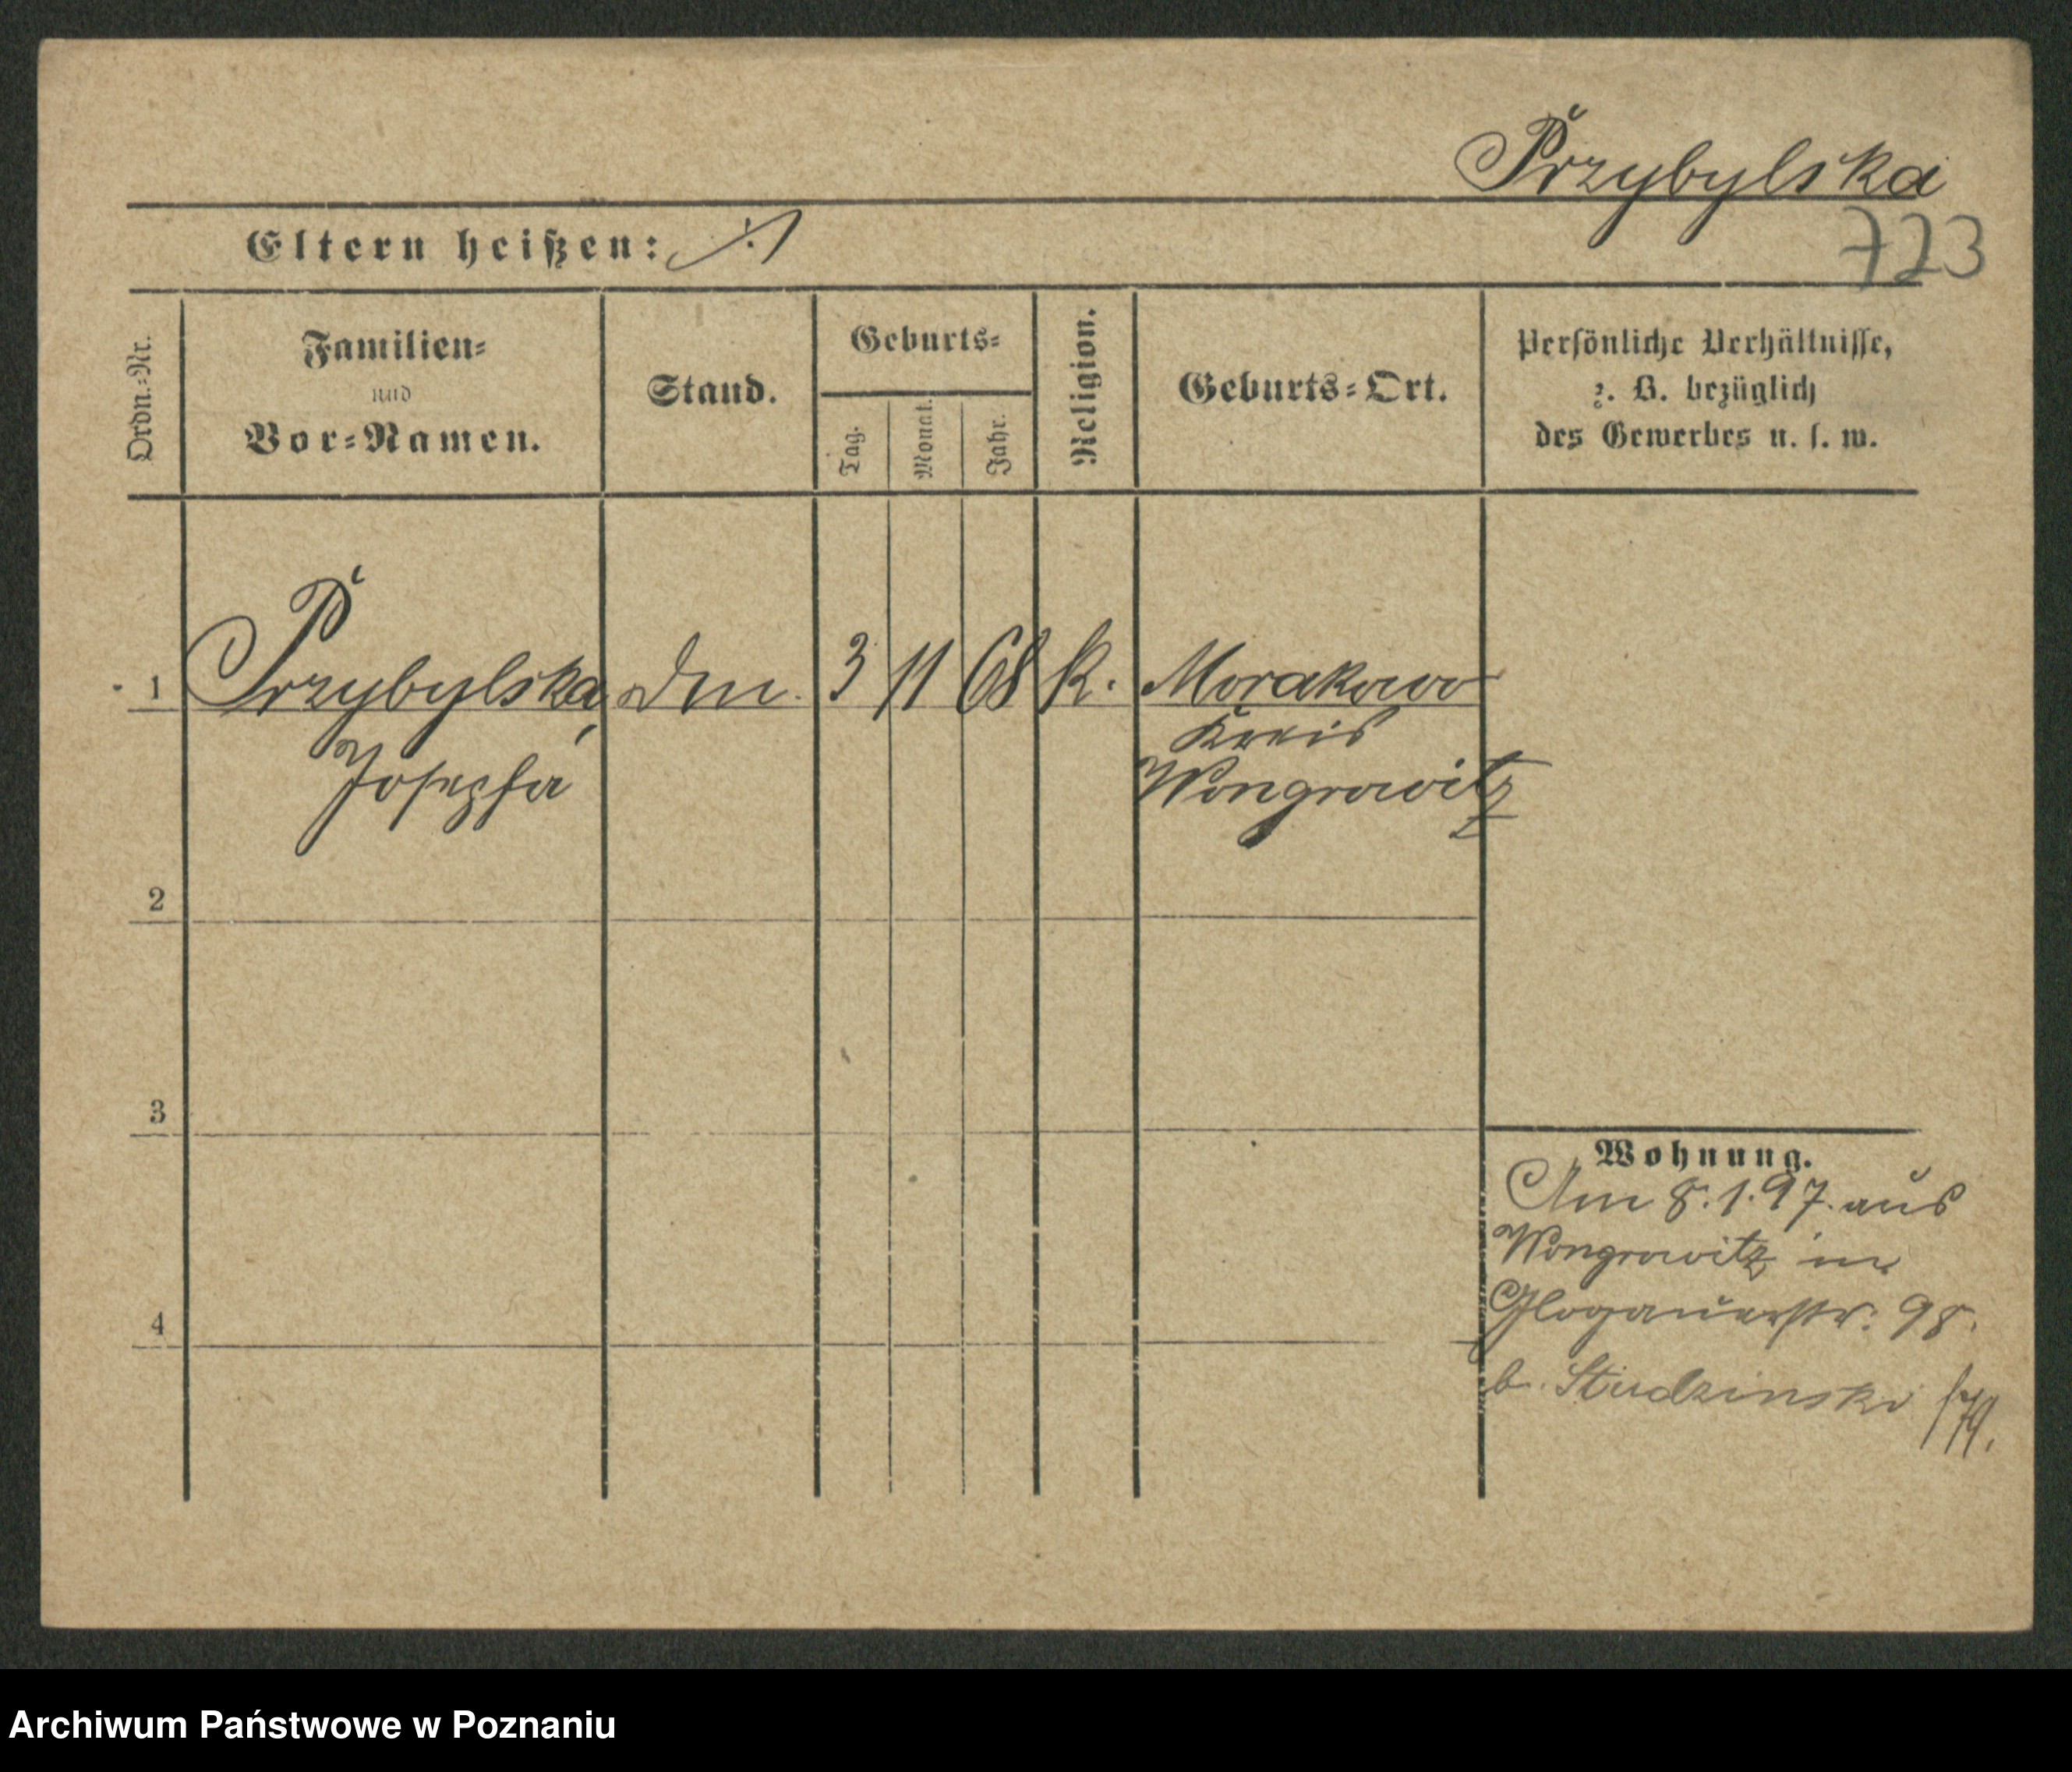 Przybylska
723
Eltern heißen: ./.
Ordn.-Nr.
Familien-
und
Vor-Namen.
Stand.
Geburts-
Tag.
Monat.
Jahr.
Religion.
Geburts-Ort.
Persönliche Verhältnisse,
z. B. bezüglich
des Gewerbes u. s. w.
1 Przybylska, 3 11 68 k. Morakowo
Josepha
Kreis
Wongrowitz
2
3
4
Wohnung.
Am 8.1.97. aus
Wongrowitz in
Glogauerstr. 98.
b. Studzinski
Archiwum Państwowe w Poznaniu